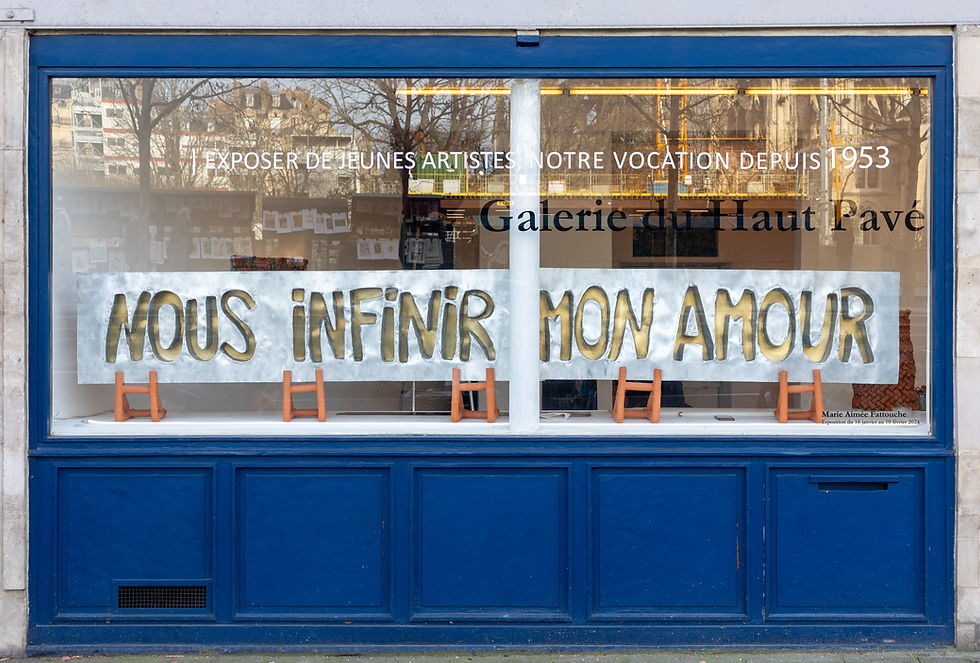 | EXPOSER DE JEUNES ARTISTES, NOTRE VOCATION DEPUIS 1953
Galerie du Haut Pavé
NOUS iNFiNiR MON AMOUR
Marie Aimée Fattouche
Exposition du 16 janvier au 10 février 2024